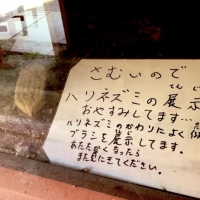 さむいので
てんじ
ハリネズミの展示
おやすみしてます…
ハリネズミのかわりによく似
ブラシを展示してます。
あたたかくなったら
また見にきてください。